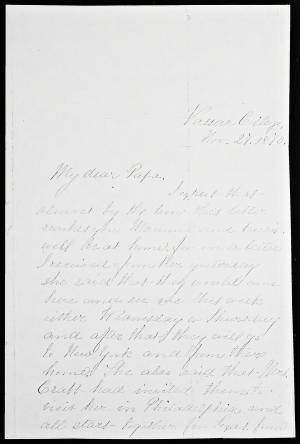 Vassar College,
Nov. 27. 1870.
My dear Papa.
I expect that
almost by the time this letter
reaches you Mamma and
will be at home, for in a letter
I received from her yesterday
she said that they would come
here and see me this week
either Wednesday or Thursday
and after that they will go
to New York and from there
home. She also said that Mrs.
Craft had invited them to
visit her in Philadelphia and
all start together for